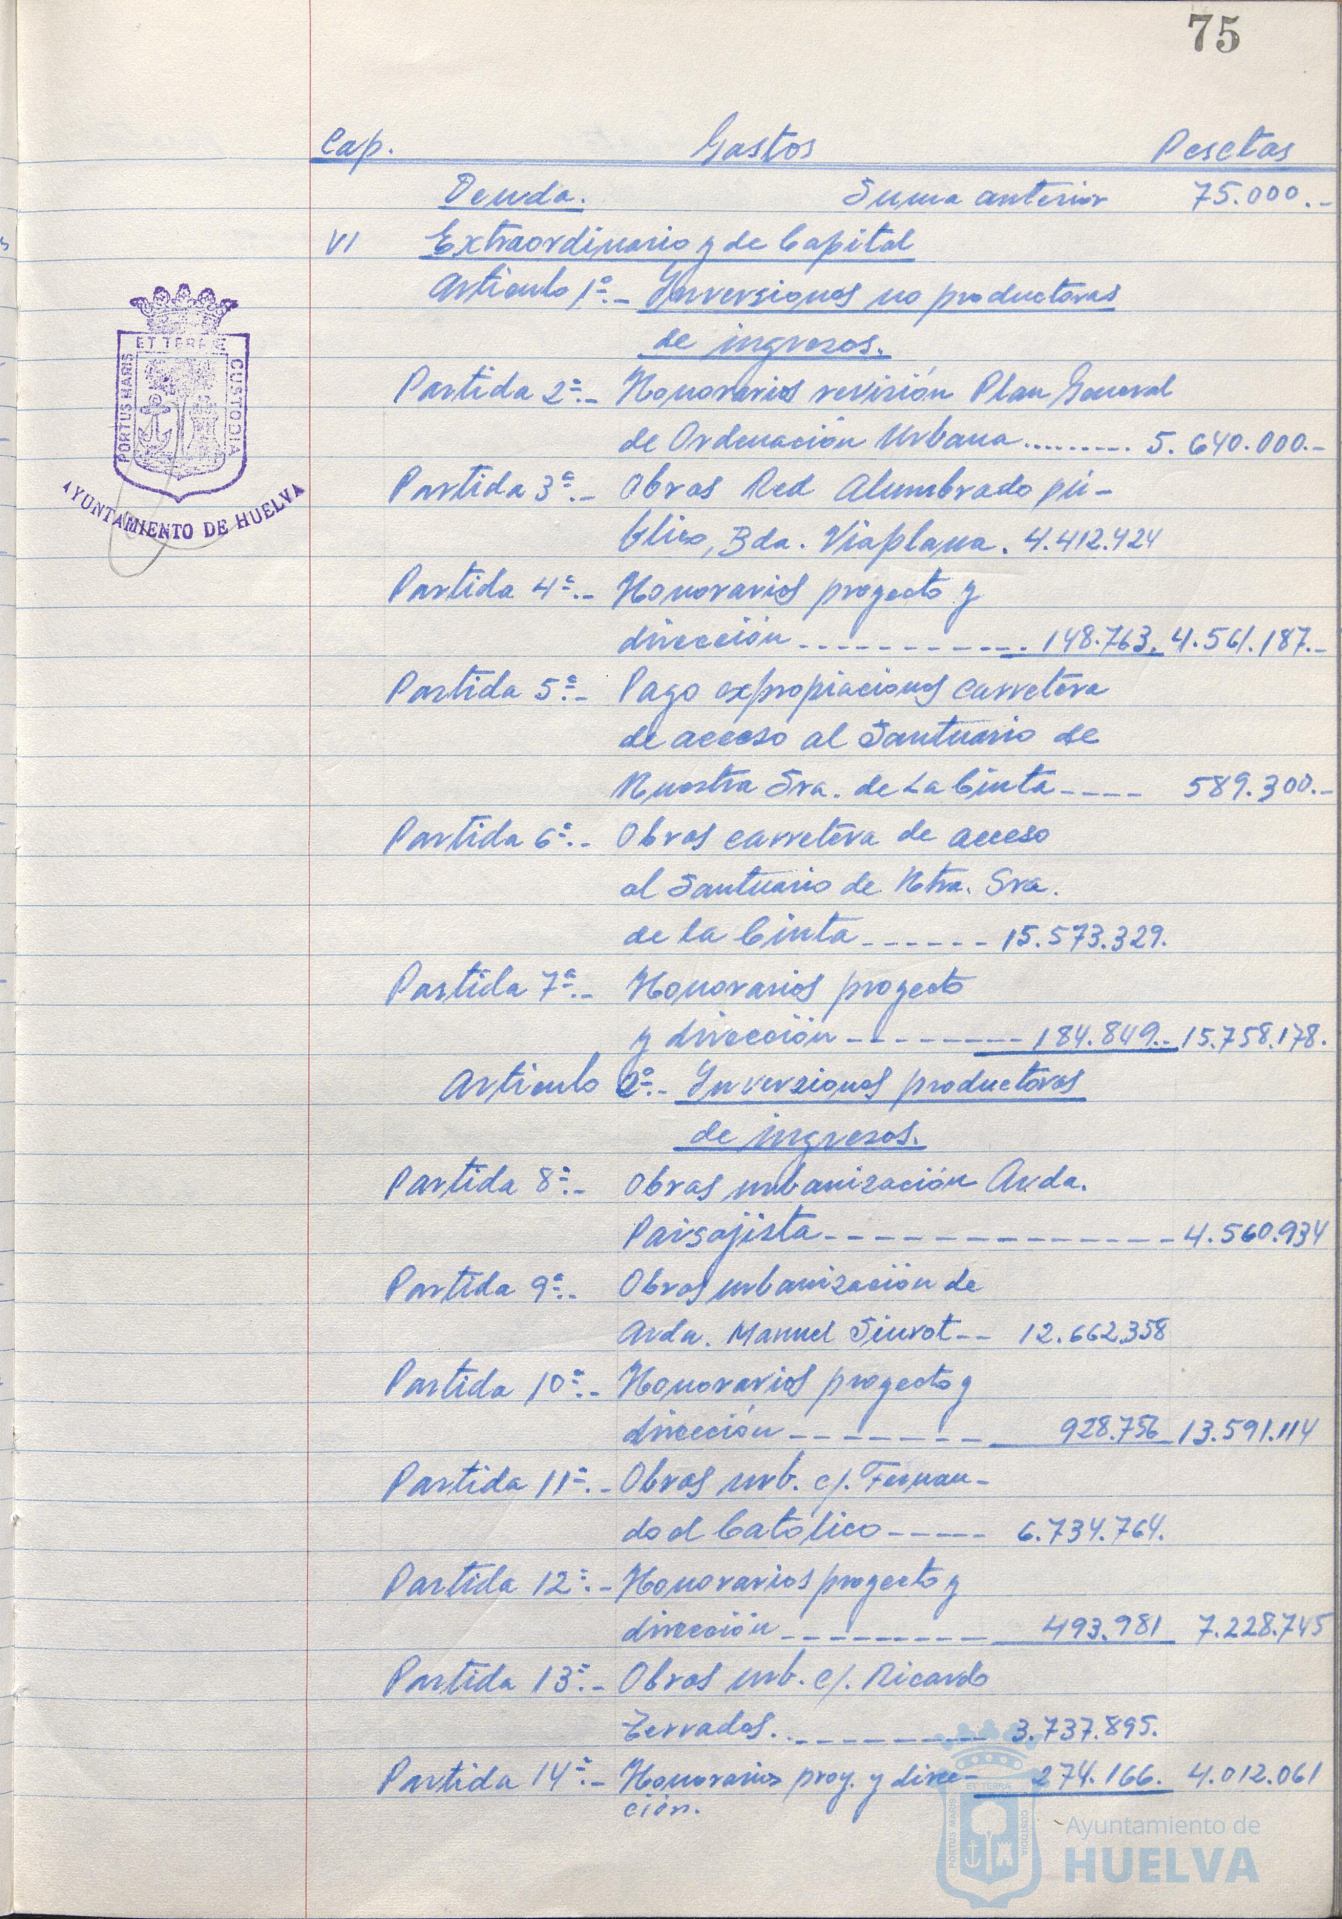 75
Cap. Gastos Pesetas
Deuda. Suma anterior 75.000.-
VI Extraordinario y de Capital
Artículo 1º.- Inversiones no productoras
de ingresos.
Partida 2ª.- Honorarios revisión Plan General
de Ordenación Urbana......... 5.640.000.-
Partida 3ª.- Obras Red Alumbrado pú-
blico, Bda. Viaplana. 4.412.424
Partida 4ª.- Honorarios proyecto y
dirección ------------ 148.763. 4.561.187.-
Partida 5ª.- Pago expropiaciones carretera
de acceso al Santuario de
Nuestra Sra. de La Cinta ---- 589.300.-
Partida 6ª.- Obras carretera de acceso
al Santuario de Ntra. Sra.
de la Cinta ------ 15.573.329.
Partida 7ª.- Honorarios proyecto
y dirección -------- 184.849.- 15.758.178.
Artículo 2º.- Inversiones productoras
de ingresos.
Partida 8ª.- Obras urbanización Avda.
Paisajista -------------- 4.560.934
Partida 9ª.- Obras urbanización de
Avda. Manuel Siurot -- 12.662.358
Partida 10ª.- Honorarios proyecto y
dirección -------- 928.756 13.591.114
Partida 11ª.- Obras urb. c/. Fernan-
do el Católico ----- 6.734.764.
Partida 12ª.- Honorarios proyecto y
dirección --------- 493.981 7.228.745
Partida 13ª.- Obras urb. c/. Ricardo
Terrades. --------- 3.737.895.
Partida 14ª.- Honorarios proy. y direc- 274.166. 4.012.061
ción.
PORTUS MARIS ET TERRAE CUSTODIA
AYUNTAMIENTO DE HUELVA
PORTUS MARIS ET TERRA CUSTODIA
Ayuntamiento de
HUELVA